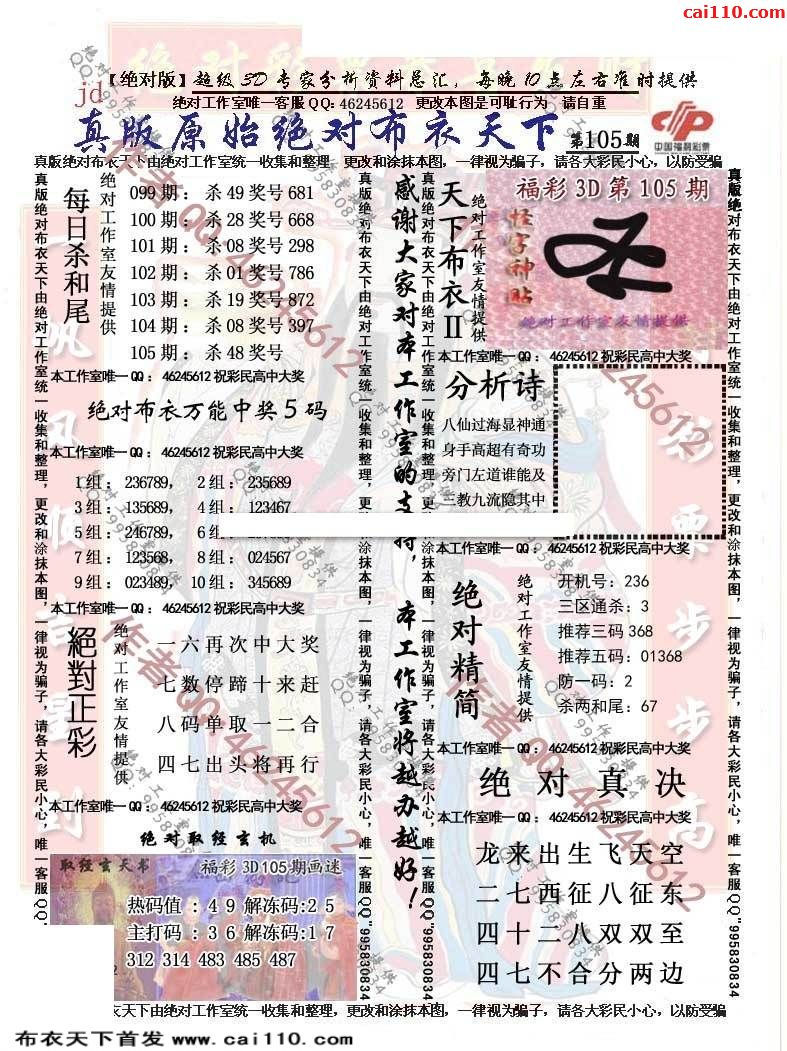 cai110.com
【绝对版】超级3D专家分析资料总汇，每晚10点左右准时提供
jd
绝对工作室唯一客服QQ：46245612 更改本图是可耻行为 请自重
真版原始绝对布衣天下 第105期
中国福利彩票
真版绝对布衣天下由绝对工作室统一收集和整理，更改和涂抹本图，一律视为骗子，请各大彩民小心，以防受骗
每日杀和尾
绝对工作室友情提供
099期：杀49奖号681
100期：杀28奖号668
101期：杀08奖号298
102期：杀01奖号786
103期：杀19奖号872
104期：杀08奖号397
105期：杀48奖号
本工作室唯一QQ：46245612祝彩民高中大奖
绝对布衣万能中奖5码
本工作室唯一QQ：46245612祝彩民高中大奖
1组：236789， 2组：235689
3组：135689， 4组：123467
5组：246789， 6组
7组：123568， 8组：024567
9组：023489， 10组：345689
本工作室唯一QQ：46245612祝彩民高中大奖
絕對正彩
绝对工作室友情提供
一六再次中大奖
七数停蹄十来赶
八码单取一二合
四七出头将再行
本工作室唯一QQ：46245612祝彩民高中大奖
绝对取经玄机
取经玄天书
福彩3D105期画迷
热码值：49解冻码：25
主打码：36解冻码：17
312 314 483 485 487
真版绝对布衣天下由绝对工作室统一收集和整理，更改和涂抹本图，一律视为骗子，请各大彩民小心，唯一客服QQ"995830834
感谢大家对本工作室的支持，本工作室将越办越好！
天下布衣II
绝对工作室友情提供
福彩3D第105期
怪字神贴
绝对工作室友情提供
本工作室唯一QQ：46245612祝彩民高中大奖
分析诗
八仙过海显神通
身手高超有奇功
旁门左道谁能及
三教九流隐其中
本工作室唯一QQ：46245612祝彩民高中大奖
绝对精简
绝对工作室友情提供
开机号：236
三区通杀：3
推荐三码368
推荐五码：01368
防一码：2
杀两和尾：67
本工作室唯一QQ：46245612祝彩民高中大奖
绝对真决
本工作室唯一QQ：46245612祝彩民高中大奖
龙来出生飞天空
二七西征八征东
四十二八双双至
四七不合分两边
衣天下由绝对工作室统一收集和整理，更改和涂抹本图，一律视为骗子，请各大彩民小心，以防受骗
布衣天下首发 www.cai110.com
作者QQ:46245612
绝对工作室提供
QQ:995830834